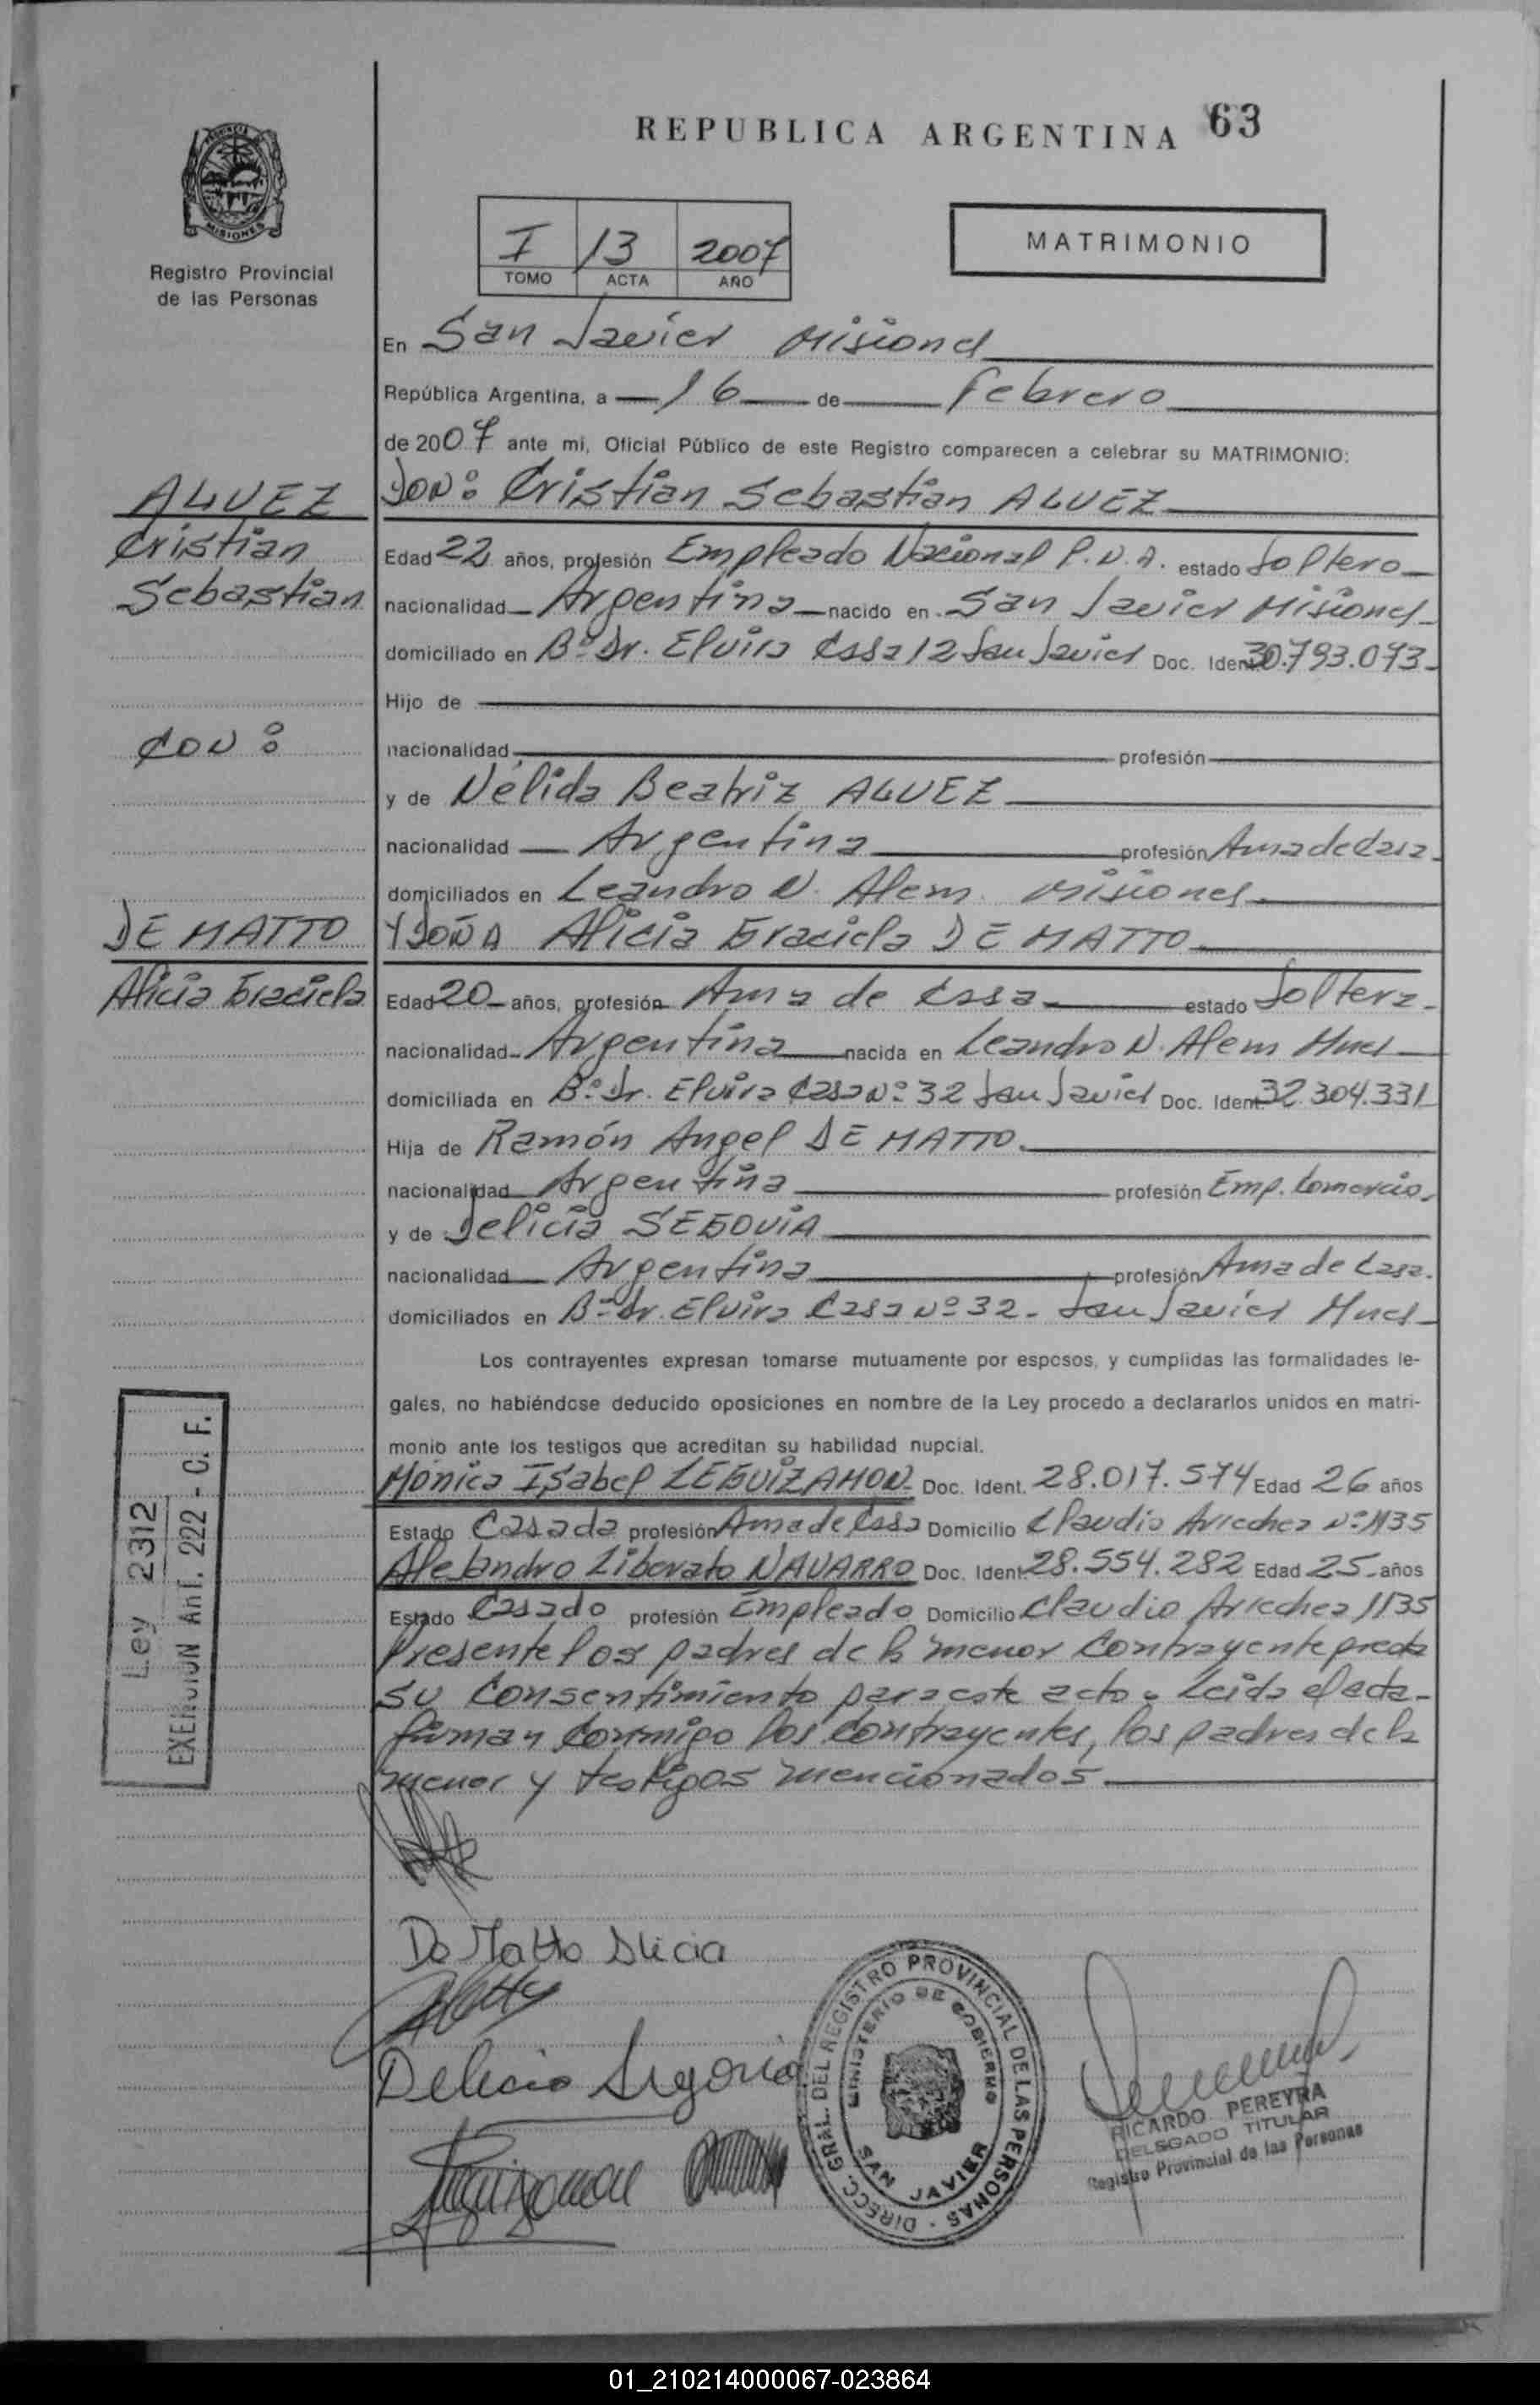 REPUBLICA ARGENTINA 63
MISIONES
Registro Provincial
de las Personas
I 13 2007
TOMO ACTA AÑO
MATRIMONIO
En San Javier Misiones
República Argentina, a 16 de Febrero
de 2007 ante mi, Oficial Público de este Registro comparecen a celebrar su MATRIMONIO:
ALVEZ
Cristian
Sebastian
CON:
DE MATTO
Alicia Graciela
DON: Cristian Sebastian ALVEZ
Edad 22 años, profesión Empleado Nacional P.N.A. estado Soltero
nacionalidad Argentina nacido en San Javier Misiones
domiciliado en Bº Dr. Elvira Casa 12 San Javier Doc. Ident. 30.793.093
Hijo de
nacionalidad profesión
y de Nélida Beatriz ALVEZ
nacionalidad Argentina profesión Ama de Casa
domiciliados en Leandro N. Alem. Misiones
Y DOÑA Alicia Graciela DE MATTO
Edad 20 años, profesión Ama de Casa estado Soltera
nacionalidad Argentina nacida en Leandro N. Alem Mnes
domiciliada en Bº Dr. Elvira Casa Nº 32 San Javier Doc. Ident. 32.304.331
Hija de Ramón Angel DE MATTO.
nacionalidad Argentina profesión Emp. Comercio.
y de Delicia SEGOVIA
nacionalidad Argentina profesión Ama de Casa.
domiciliados en Bº Dr. Elvira Casa Nº 32 - San Javier Mnes
Los contrayentes expresan tomarse mutuamente por esposos, y cumplidas las formalidades le-
gales, no habiéndose deducido oposiciones en nombre de la Ley procedo a declararlos unidos en matri-
monio ante los testigos que acreditan su habilidad nupcial.
Mónica Isabel LEGUIZAMON Doc. Ident. 28.017.574 Edad 26 años
Estado Casada profesión Ama de Casa Domicilio Claudio Arrechea Nº 1135
Alejandro Liborato NAVARRO Doc. Ident. 28.554.282 Edad 25 años
Estado Casado profesión Empleado Domicilio Claudio Arrechea 1135
Presente los padres de la menor contrayente presta
su consentimiento para este acto. Leida el acta
firman conmigo los contrayentes, los padres de la
menor y testigos mencionados
Ley 2312
EXENCION Art. 222 - C. F.
De Matto Alicia
Delicia Segovia
Leguizamon
DIRECC. GRAL. DEL REGISTRO PROVINCIAL DE LAS PERSONAS
MINISTERIO DE GOBIERNO
SAN JAVIER
RICARDO PEREYRA
DELEGADO TITULAR
Registro Provincial de las Personas
01_210214000067-023864